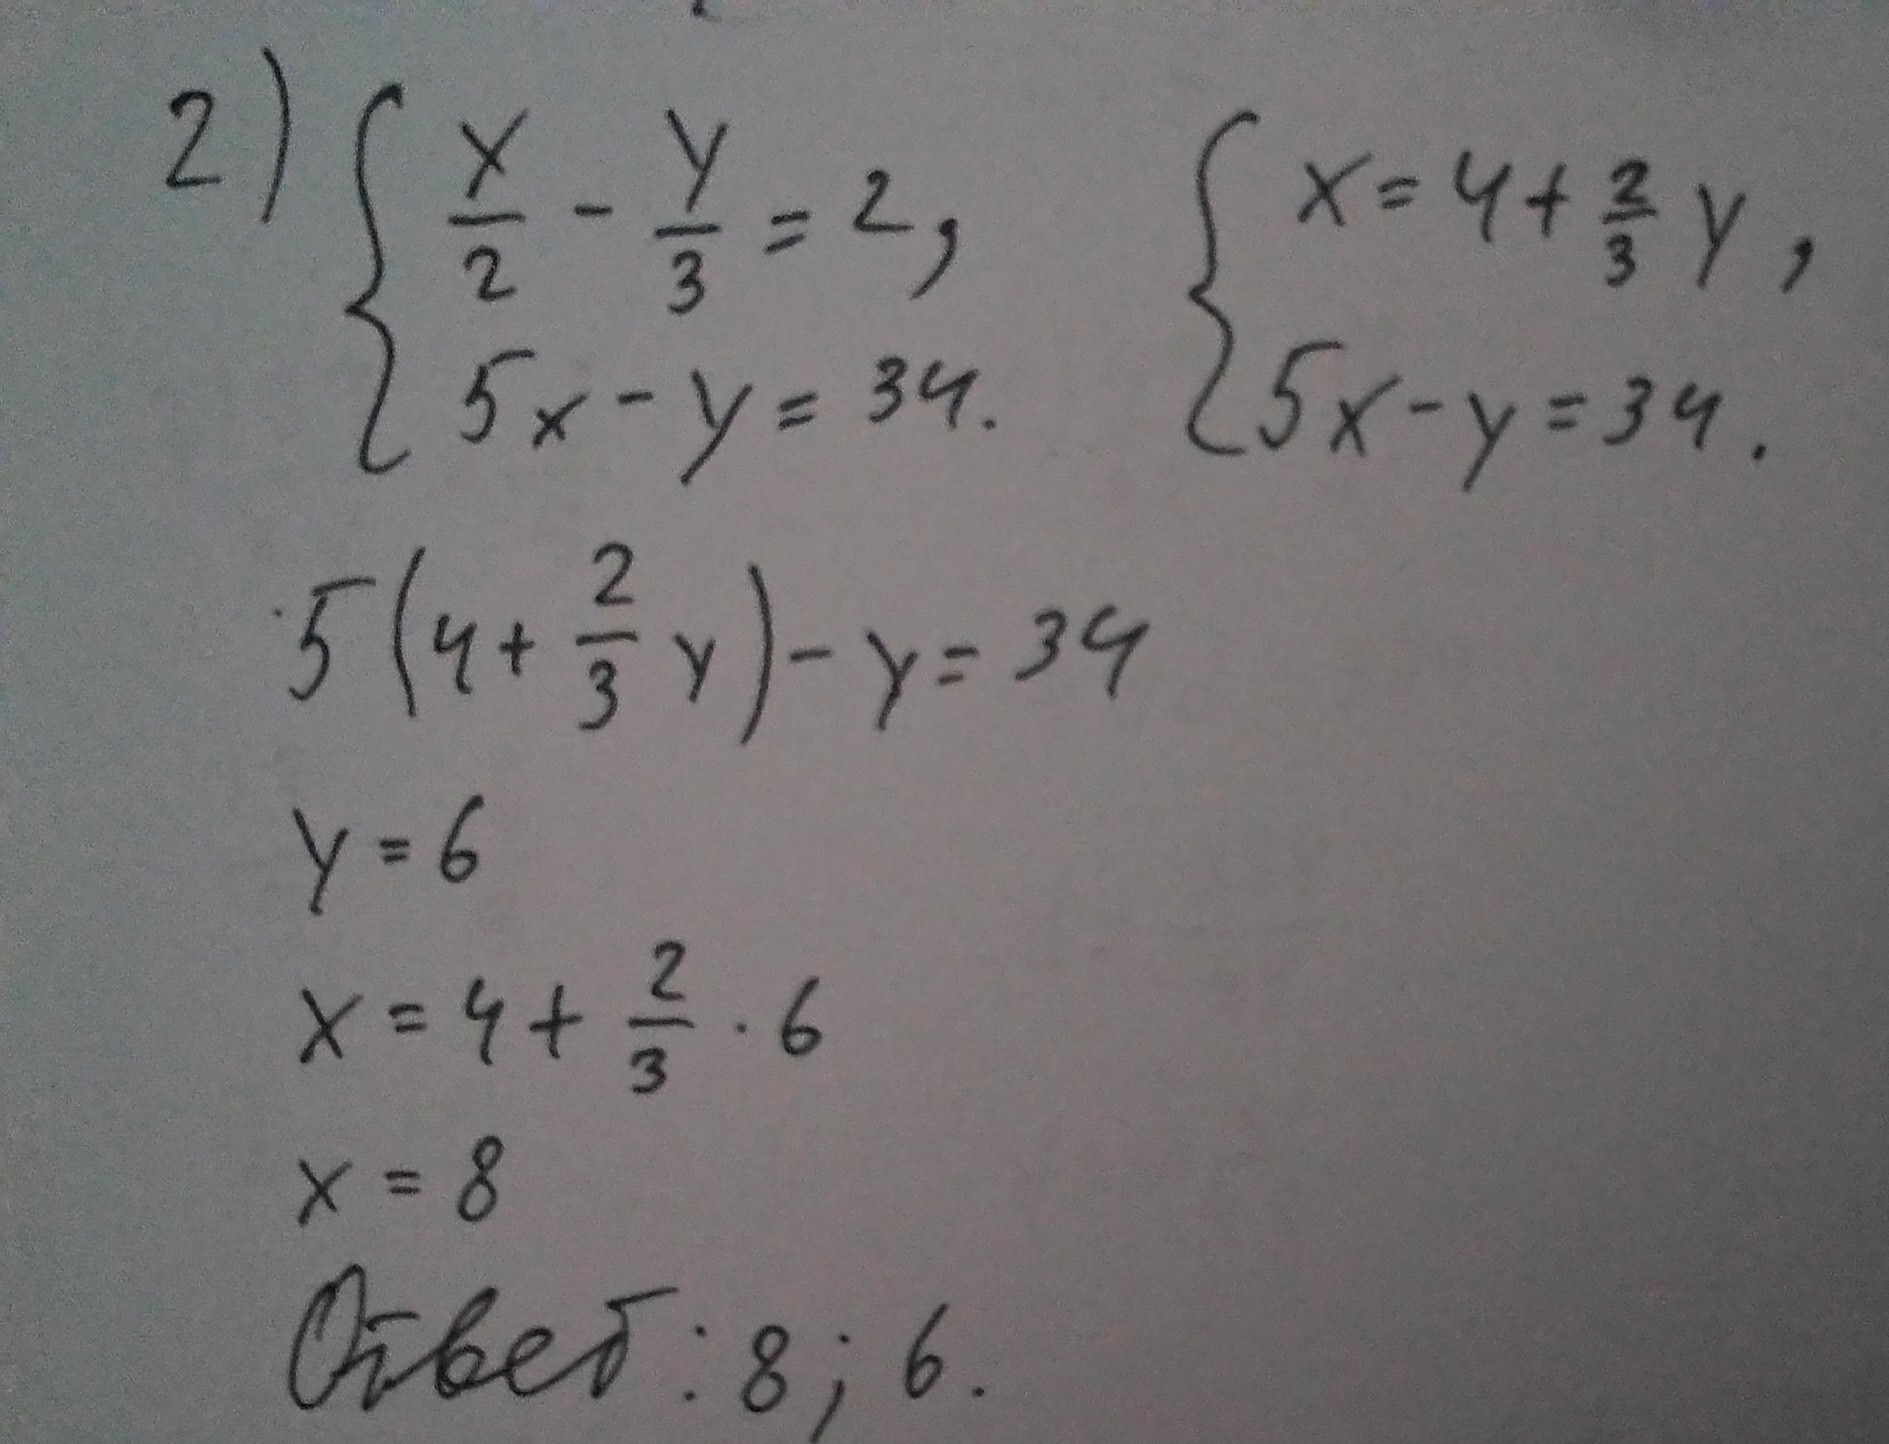 2) { x/2 - y/3 = 2, { x = 4 + 2/3 y,
5x - y = 34. 5x - y = 34.
5(4 + 2/3 y) - y = 34
y = 6
x = 4 + 2/3 · 6
x = 8
Ответ: 8; 6.